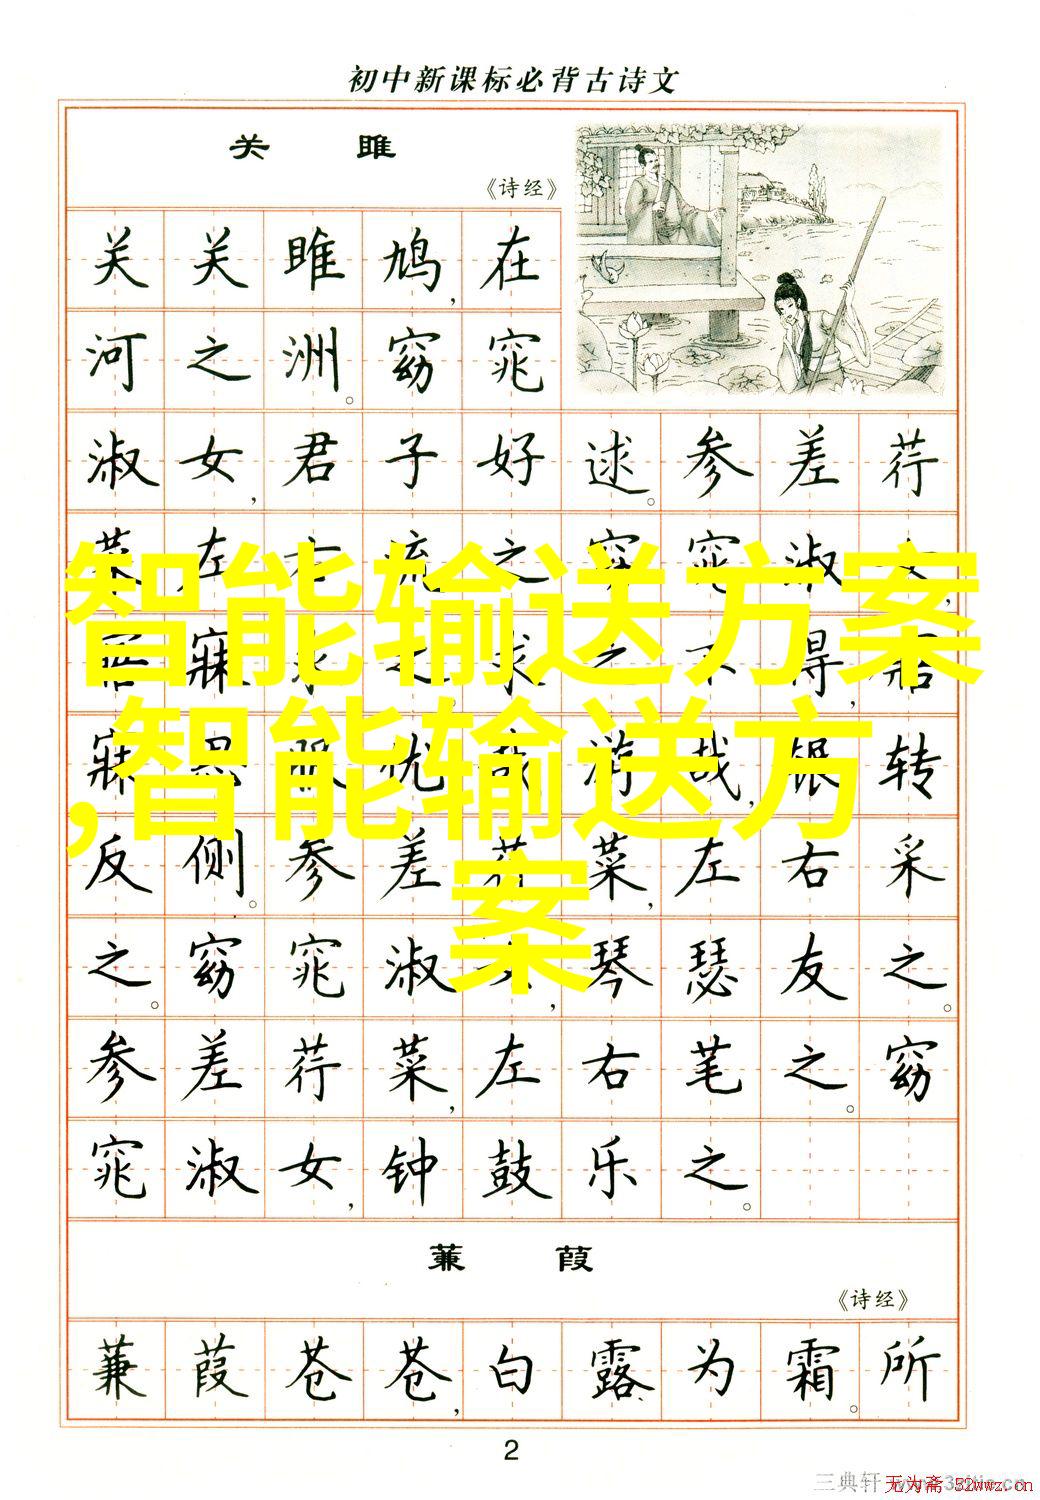 初中新课标必背古诗文
关 雎
《诗经》
关关雎鸠,在
河之洲。窈窕
淑女,君子好逑。参差荇
菜左流之窈窕淑女,
智能输送方案
寤寐求之求之不得,寤
寐思服哉游哉,辗转
,智能输送方
反侧。参差荇菜,左右采
案
之。窈窕淑女,琴瑟友之。
参差荇菜,左右芼之。窈
窕淑女,钟鼓乐之。
蒹 葭
《诗经》
蒹葭苍苍,白露为霜。所
2
三典轩
无为斋 52wwz.cn